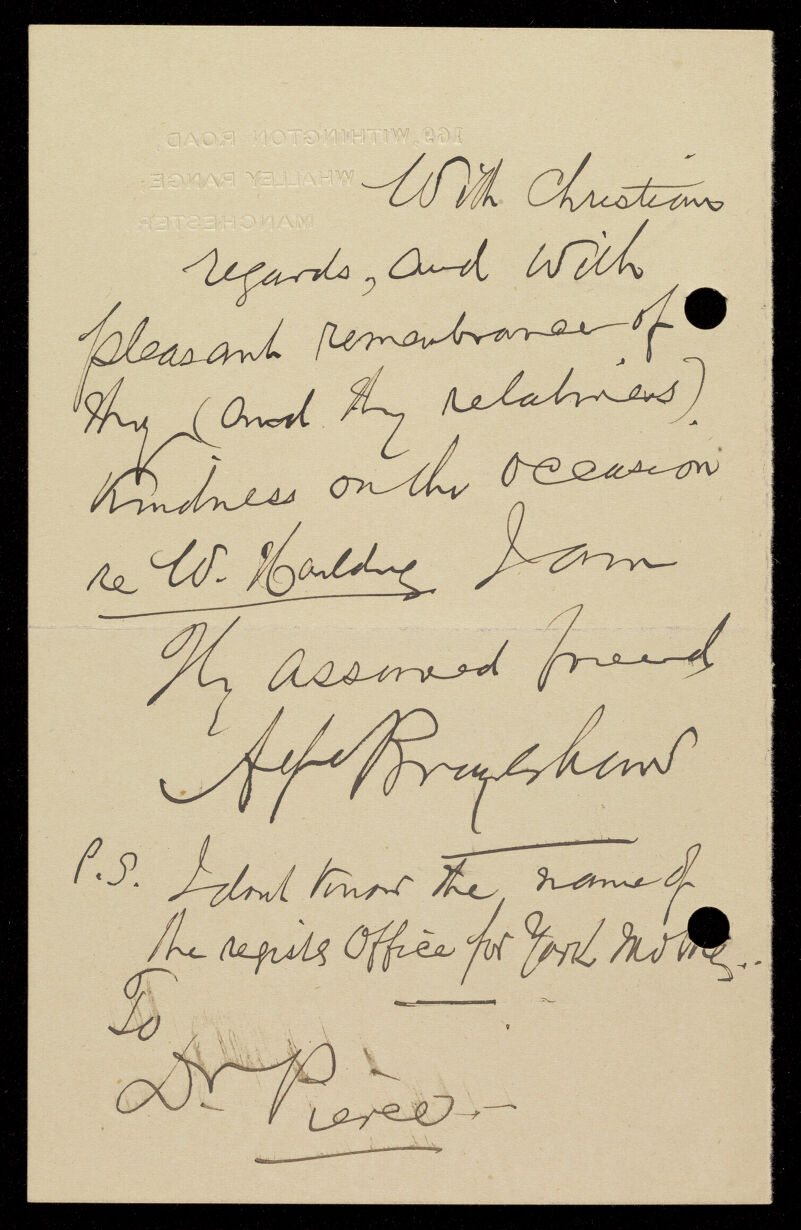 169, WITHINGTON ROAD,
WHALLEY RANGE
MANCHESTER
With Christian
regards, and with
pleasant remembrance of
thy (and thy relatives)
kindness on the occasion
re W. Harding I am
Thy assured friend
Alfd Brayshaw
P.S. I dont know the name of
the registg Office for York Mo Mtg..
To
Dr. Pierce.—